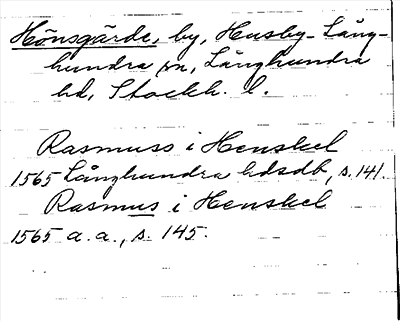 Hönsgärde, by, Husby-Lång-
hundra sn, Långhundra
hd, Stockh. l.
Rasmuss i Henskel
1565 Långhundra hdsdb, s. 141.
Rasmus i Henskel
1565 a.a., s. 145.